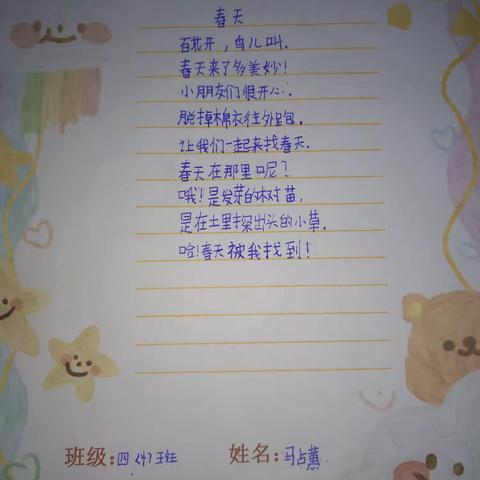 春天
百花开，鸟儿叫.
春天来了多美妙！
小朋友们很开心.
脱掉棉衣往外跑.
让我们一起来找春天.
春天在那里呢？
哦！是发芽的树苗，
是在土里探出头的小草.
哈！春天被我找到！
班级：四〈4〉班 姓名：马占蕙.